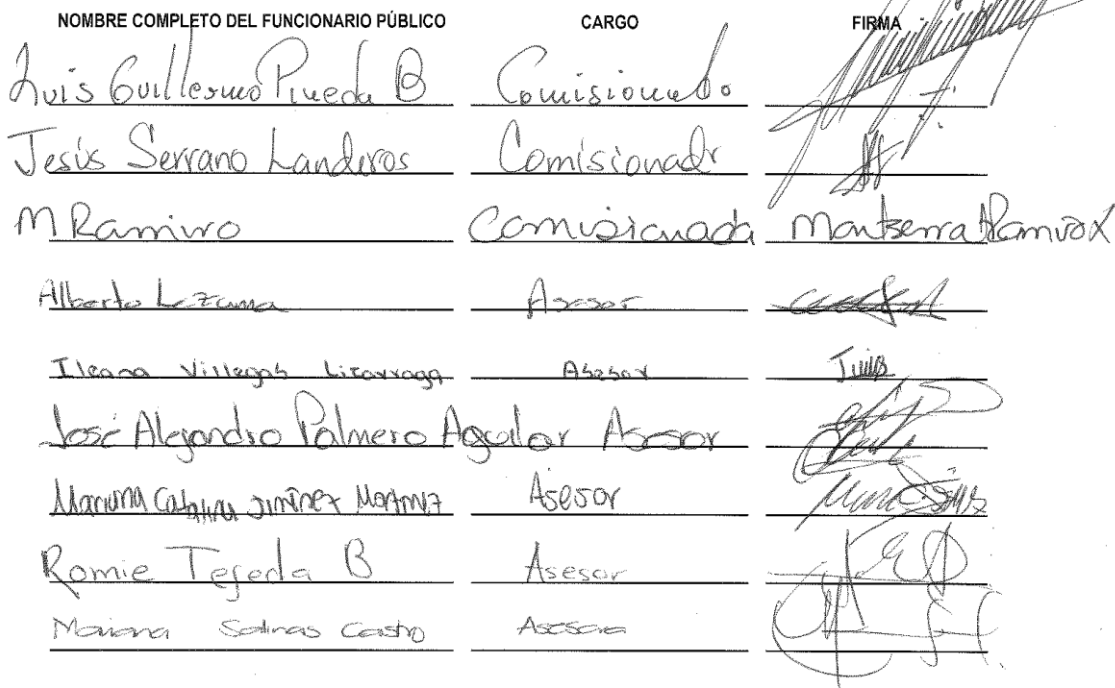 NOMBRE COMPLETO DEL FUNCIONARIO PÚBLICO CARGO FIRMA
Luis Guillermo Pineda B Comisionado
Jesús Serrano Landeros Comisionado
M Ramirro Comisionada Montserra Ramirox
Alberto Lezama Asesor
Ileana Villegas Lizarraga Asesor
José Alejandro Palmero Aguilar Asesor
Mariana Catalina Jiménez Martínez Asesor
Romie Tejeda B Asesor
Mariana Salinas Castro Asesora